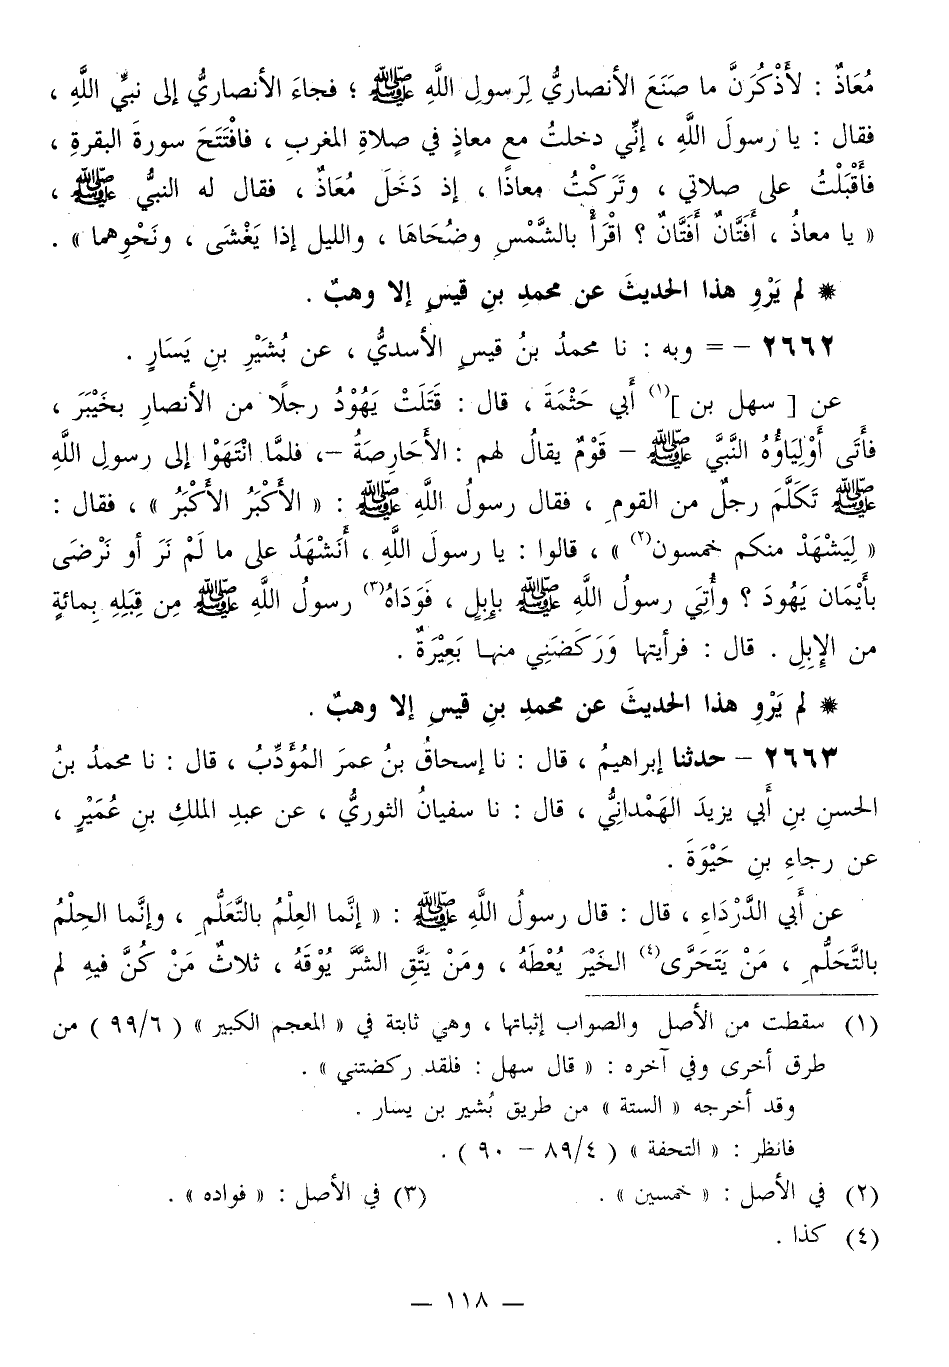 مُعَاذٌ : لأَذْكُرَنَّ ما صَنَعَ الأنصاريُّ لِرَسولِ اللَّهِ ﷺ ؛ فجاءَ الأنصاريُّ إلى نبيِّ اللَّهِ ،
فقال : يا رسولَ اللَّهِ ، إنِّي دخلتُ مع معاذٍ في صلاةِ المغربِ ، فافْتَتَحَ سورةَ البقرةِ ،
فأَقْبَلْتُ على صلاتي ، وتَرَكْتُ معاذًا ، إذ دَخَلَ مُعَاذٌ ، فقال له النبيُّ ﷺ ،
« يا معاذُ ، أَفَتَّانٌ أَفَتَّانٌ ؟ اقْرَأْ بالشَّمْسِ وضُحَاهَا ، والليل إذا يَغْشَى ، ونَحْوِهما » .
* لم يَرْوِ هذا الحديثَ عن محمدِ بنِ قيسٍ إلا وهبٌ .
٢٦٦٢ – = وبه : نا محمدُ بنُ قيسٍ الأسديُّ ، عن بُشَيْرِ بنِ يَسَارٍ .
عن [ سهل بن ](١) أَبي حَثْمَةَ ، قال : قَتَلَتْ يَهُوْدُ رجلًا من الأنصارِ بخَيْبَرَ ،
فأَتَى أَوْلِيَاؤُهُ النَّبيَّ ﷺ – قَوْمٌ يقالُ لهم : الأَحَارِصَةُ –، فلمَّا انْتَهَوْا إلى رسولِ اللَّهِ
ﷺ تَكَلَّمَ رجلٌ من القومِ ، فقال رسولُ اللَّهِ ﷺ : « الأَكْبَرُ الأَكْبَرُ » ، فقال :
« لِيَشْهَدْ منكم خمسون(٢) » ، قالوا : يا رسولَ اللَّهِ ، أَنَشْهَدُ على ما لَمْ نَرَ أو نَرْضَى
بأَيْمَان يَهُودَ ؟ وأُتِيَ رسولُ اللَّهِ ﷺ بإبِلٍ ، فَوَدَاهُ(٣) رسولُ اللَّهِ ﷺ مِن قِبَلِهِ بِمائةٍ
من الإِبِلِ . قال : فرأيتها وَرَكَضَنِي منهـا بَعِيْرَةٌ .
* لم يَرْوِ هذا الحديثَ عن محمدِ بنِ قيسٍ إلا وهبٌ .
٢٦٦٣ – حدثنا إبراهيمُ ، قال : نا إسحاقُ بنُ عمرَ المُؤَدِّبُ ، قال : نا محمدُ بنُ
الحسنِ بنِ أَبي يزيدَ الهَمْدانِيُّ ، قال : نا سفيانُ الثوريُّ ، عن عبدِ الملكِ بنِ عُمَيْرٍ ،
عن رجاءِ بنِ حَيْوَةَ .
عن أَبي الدَّرْدَاءِ ، قال : قال رسولُ اللَّهِ ﷺ : « إنَّما العِلْمُ بالتَّعَلُّمِ ، وإنَّما الحِلْمُ
بالتَّحَلُّمِ ، مَنْ يَتَحَرَّى(٤) الخَيْرَ يُعْطَهُ ، ومَنْ يَتَّقِ الشَّرَّ يُوْقَهُ ، ثلاثٌ مَنْ كُنَّ فيهِ لم
(١) سقطت من الأصل والصواب إثباتها ، وهي ثابتة في « المعجم الكبير » ( ٩٩/٦ ) من
طرق أخرى وفي آخره : « قال سهل : فلقد ركضتني » .
وقد أخرجه « الستة » من طريق بُشير بن يسار .
فانظر : « التحفة » ( ٨٩/٤ – ٩٠ ) .
(٢) في الأصل : « خمسين » . (٣) في الأصل : « فواده » .
(٤) كذا .
– ١١٨ –